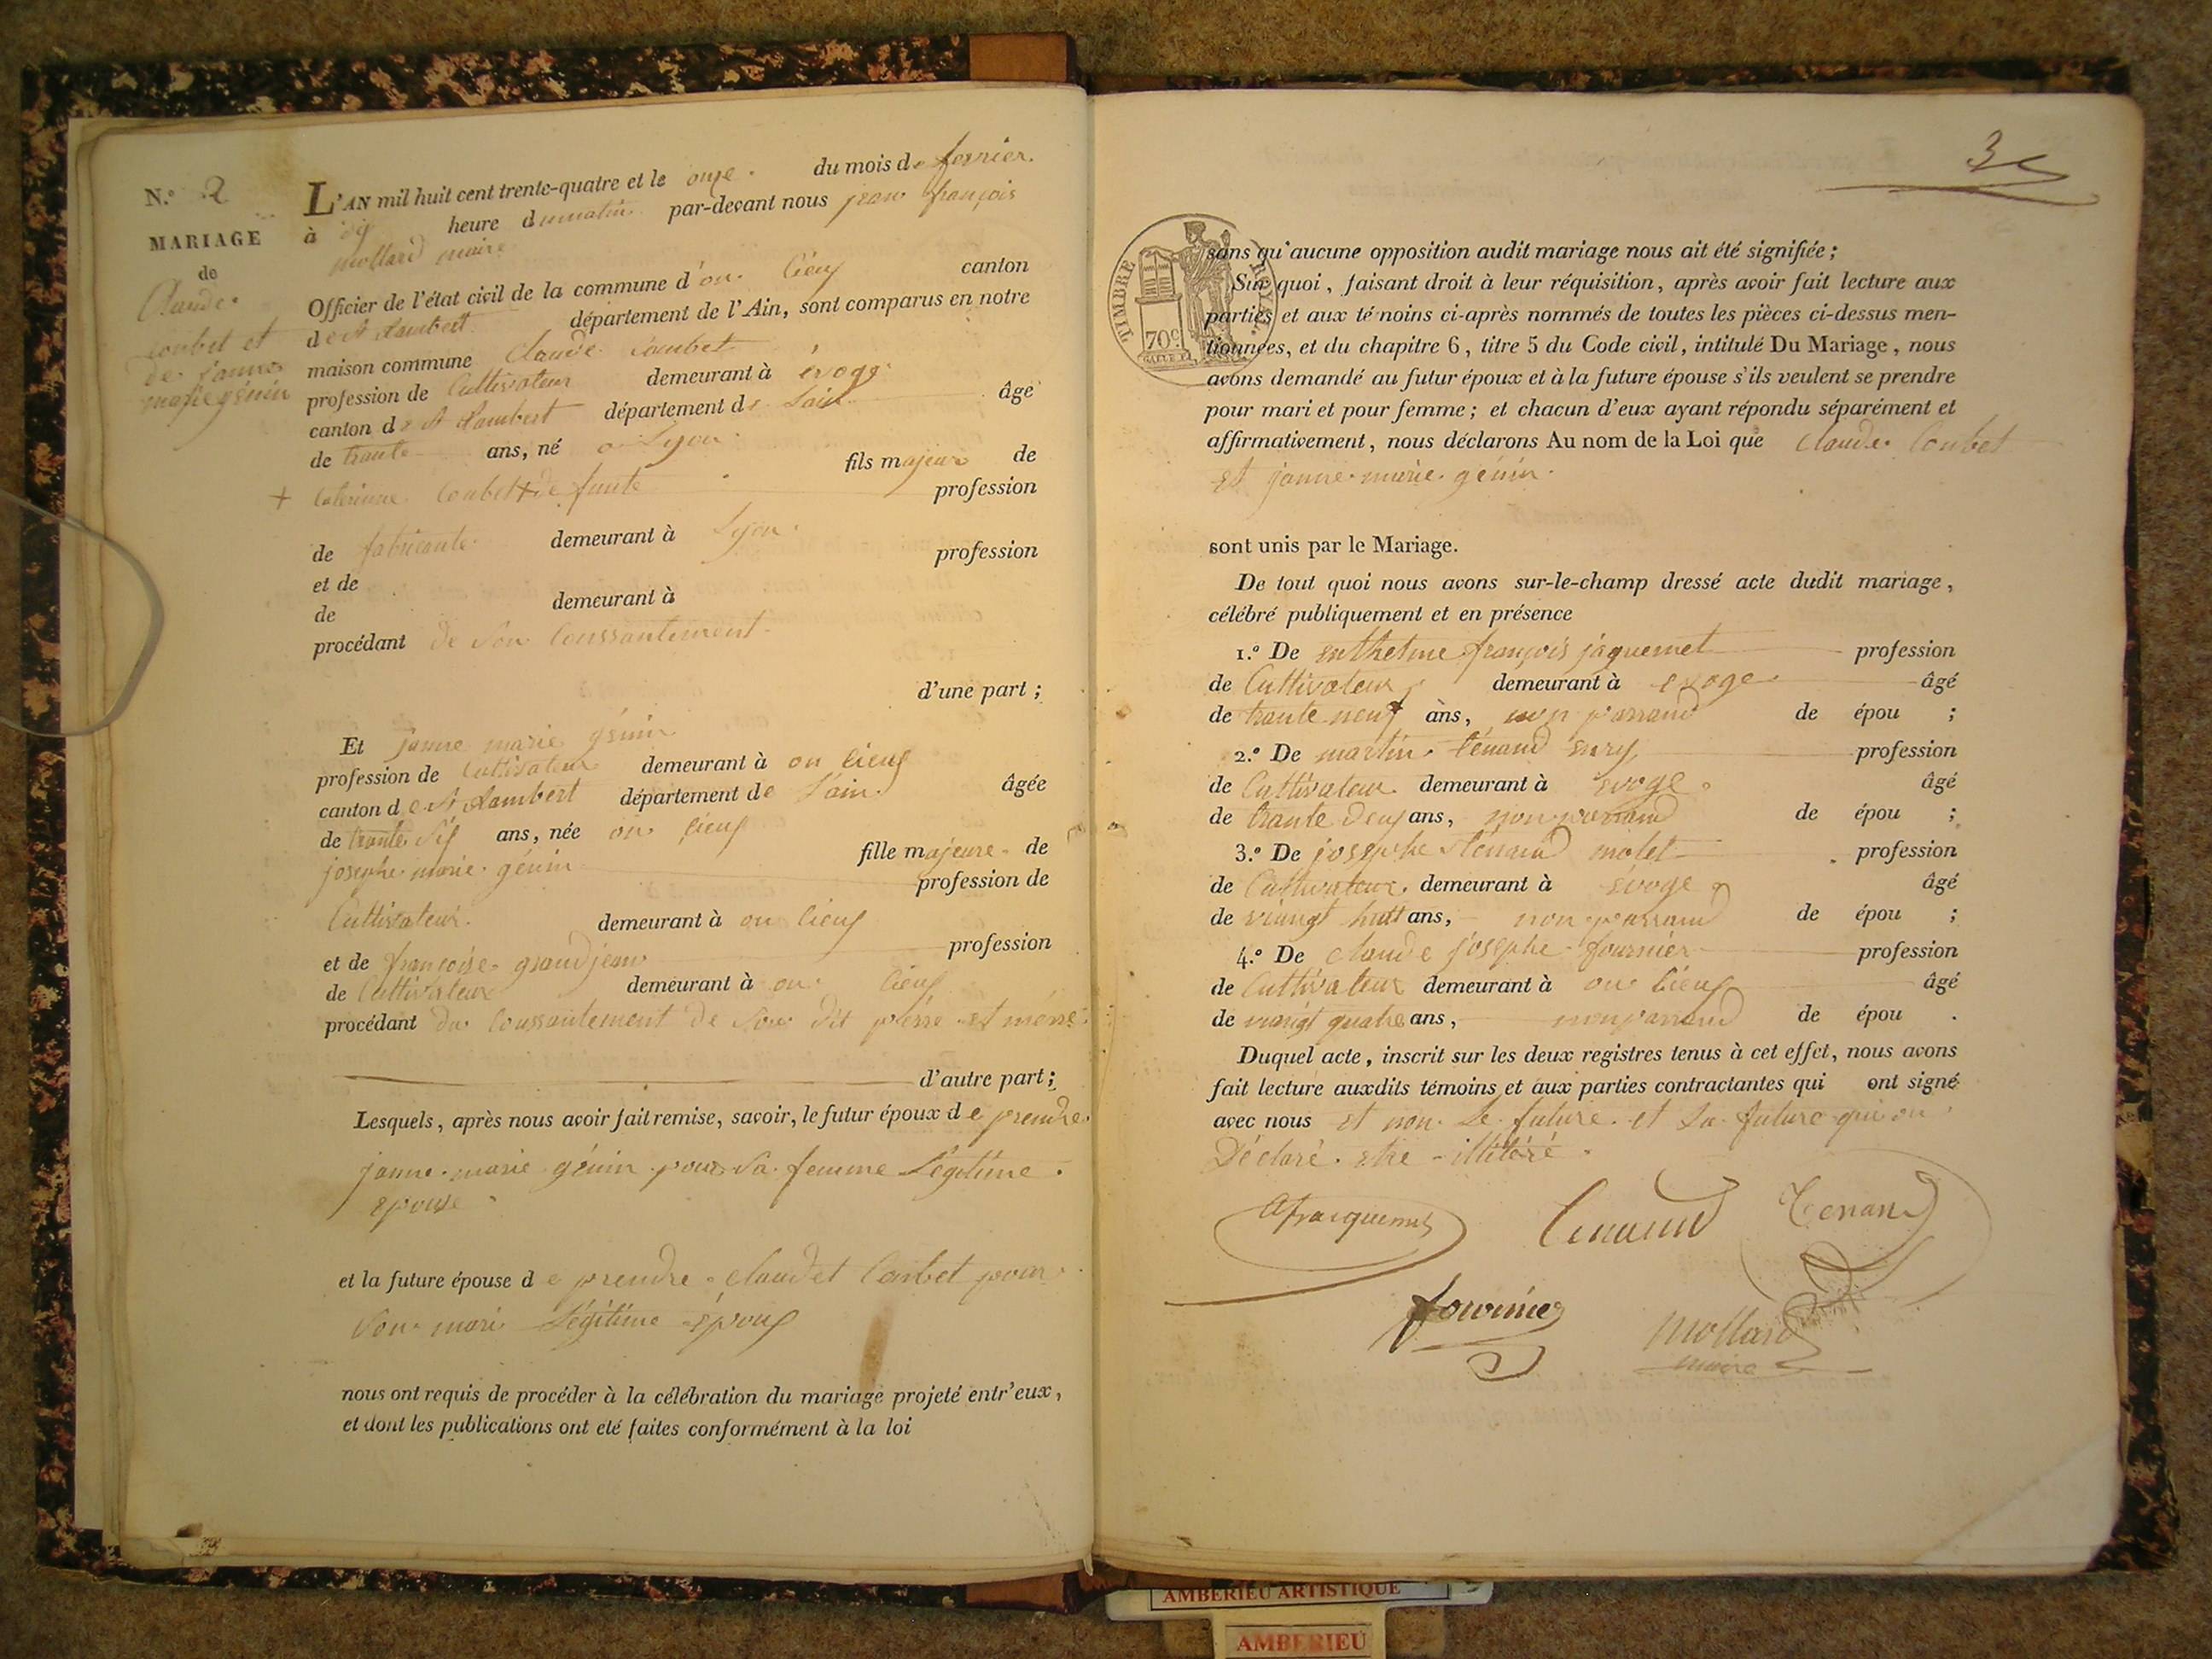 N.º 2
MARIAGE
de
Claude
Conbet et
de janne
marie génin
L'AN mil huit cent trente-quatre et le onze du mois de fevrier.
à heure du matin par-devant nous jean françois
mollard maire
Officier de l'état civil de la commune d'on cieux canton
de st Rambert département de l'Ain, sont comparus en notre
maison commune Claude Conbet
profession de Cultivateur demeurant à évoge
canton de st Rambert département de Lain âgé
de trante ans, né a Lyon
fils majeur de
+ Caterinne Conbet + de funte profession
de fabricante demeurant à Lyon
et de profession
de demeurant à
procédant de son Conssantement
d'une part;
Et janne marie génin
profession de Cultivateur demeurant à on cieux
canton de st Rambert département de Lain âgée
de trante six ans, née on cieux
josephe marie génin fille majeure de
profession de
Cultivateur demeurant à on cieux
et de françoise grandjean profession
de Cultivateur demeurant à on cieux
procédant du Conssantement de son dit pérre et mérre
d'autre part;
Lesquels, après nous avoir fait remise, savoir, le futur époux de prendre
janne marie génin pour sa femme Légitime
epouse
et la future épouse de prendre claudet Conbet pour
son mari Légitime époux
nous ont requis de procéder à la célébration du mariage projeté entr'eux,
et dont les publications ont eté faites conformément à la loi
3
TIMBRE ROYAL
70c
sans qu'aucune opposition audit mariage nous ait été signifiée;
Sur quoi, faisant droit à leur réquisition, après avoir fait lecture aux
parties et aux témoins ci-après nommés de toutes les pièces ci-dessus men-
tionnées, et du chapitre 6, titre 5 du Code civil, intitulé Du Mariage, nous
avons demandé au futur époux et à la future épouse s'ils veulent se prendre
pour mari et pour femme; et chacun d'eux ayant répondu séparément et
affirmativement, nous déclarons Au nom de la Loi que Claude Conbet
et janne marie génin
sont unis par le Mariage.
De tout quoi nous avons sur-le-champ dressé acte dudit mariage,
célébré publiquement et en présence
1.º De anthelme françois jaquemet profession
de Cultivateur demeurant à evoge âgé
de trante neuf ans, non parrand de épou ;
2.º De martin ténand profession
de Cultivateur demeurant à evoge âgé
de trante deux ans, non parrand de épou ;
3.º De josephe ténand molet profession
de Cultivateur demeurant à évoge âgé
de viangt huit ans, non parrand de épou ;
4.º De claude josephe fournier profession
de Cultivateur demeurant à on cieux âgé
de viangt quatre ans, non parrand de épou .
Duquel acte, inscrit sur les deux registres tenus à cet effet, nous avons
fait lecture auxdits témoins et aux parties contractantes qui ont signé
avec nous et non Le future et La future qui on
Déclaré etre illitéré
Tenand Tenand
fournier Mollard
maire
AMBERIEU ARTISTIQUE
AMBERIEU